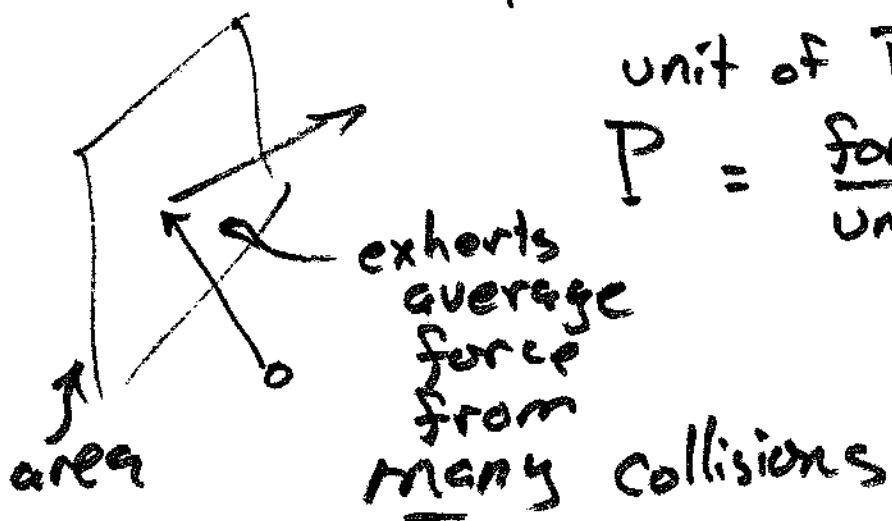 unit of
P =
exhorts
average
force
from
many collisions
area